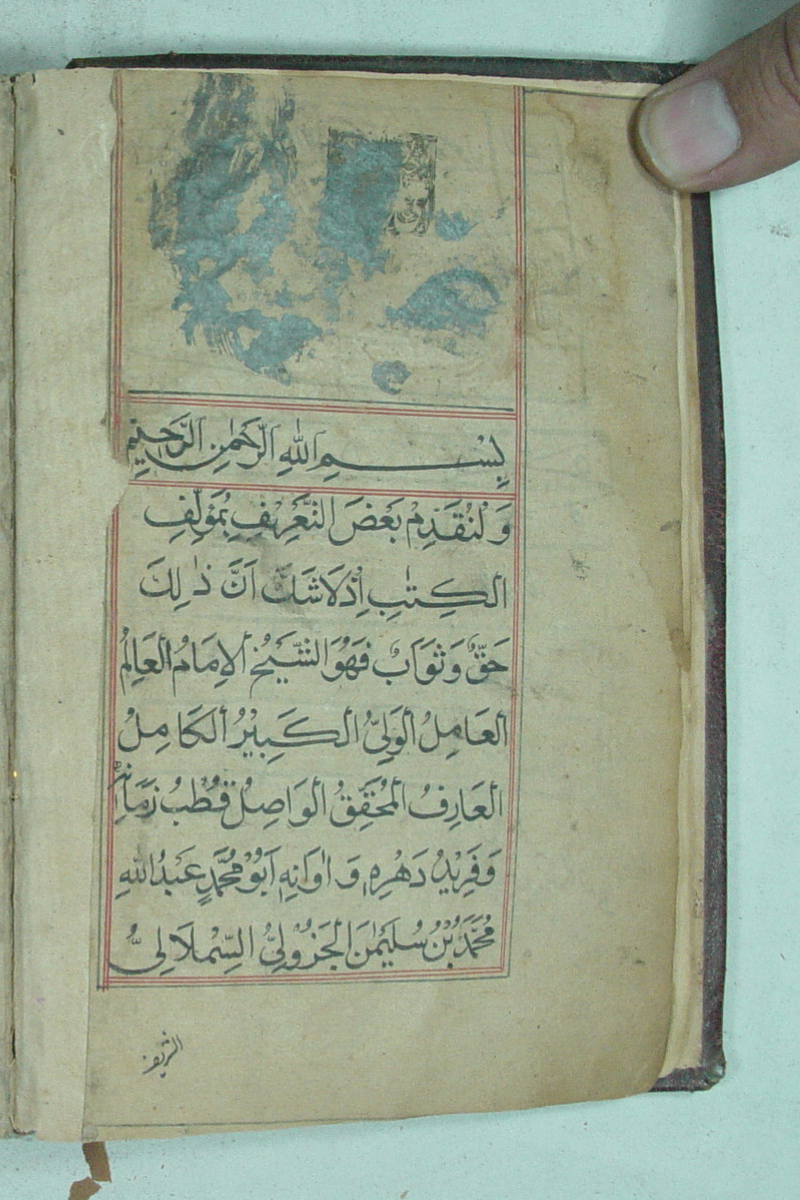 بِسْمِ اللهِ الرَّحْمٰنِ الرَّحِيْمِ
وَلْنُقَدِّمْ بَعْضَ التَّعْرِيْفِ بِمُؤَلِّفِ
الْكِتٰبِ اِذْ لَا شَكَّ اَنَّ ذٰلِكَ
حَقٌّ وَثَوَابٌ فَهُوَ الشَّيْخُ الْاِمَامُ الْعَالِمُ
الْعَامِلُ الْوَلِيُّ الْكَبِيْرُ الْكَامِلُ
الْعَارِفُ الْمُحَقِّقُ الْوَاصِلُ قُطْبُ زَمَانِهٖ
وَفَرِيْدُ دَهْرِهٖ وَاَوَانِهٖ اَبُوْ مُحَمَّدٍ عَبْدُ اللهِ
مُحَمَّدُ بْنُ سُلَيْمٰنَ الْجَزُوْلِيُّ السِّمْلَالِيُّ
الشريف